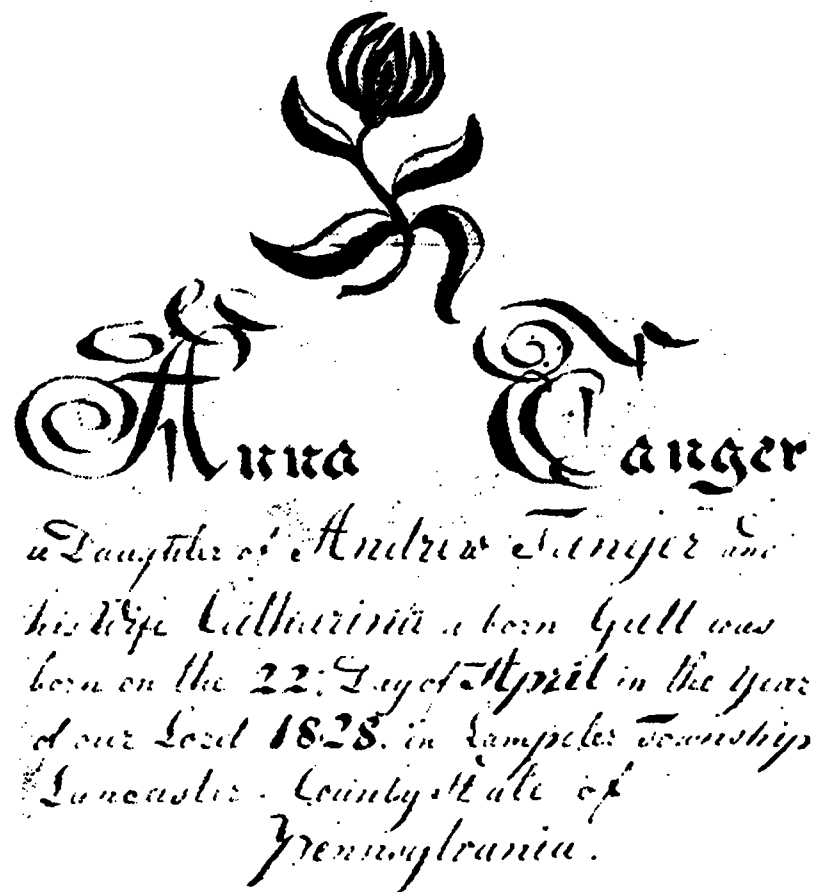 Anna Tanger
a Daughter of Andrew Tanger and
his Wife Catharina a born Gull was
born on the 22: Day of April in the year
of our Lord 1828. in Lampeter Township
Lancaster. County State of
Pennsylvania.